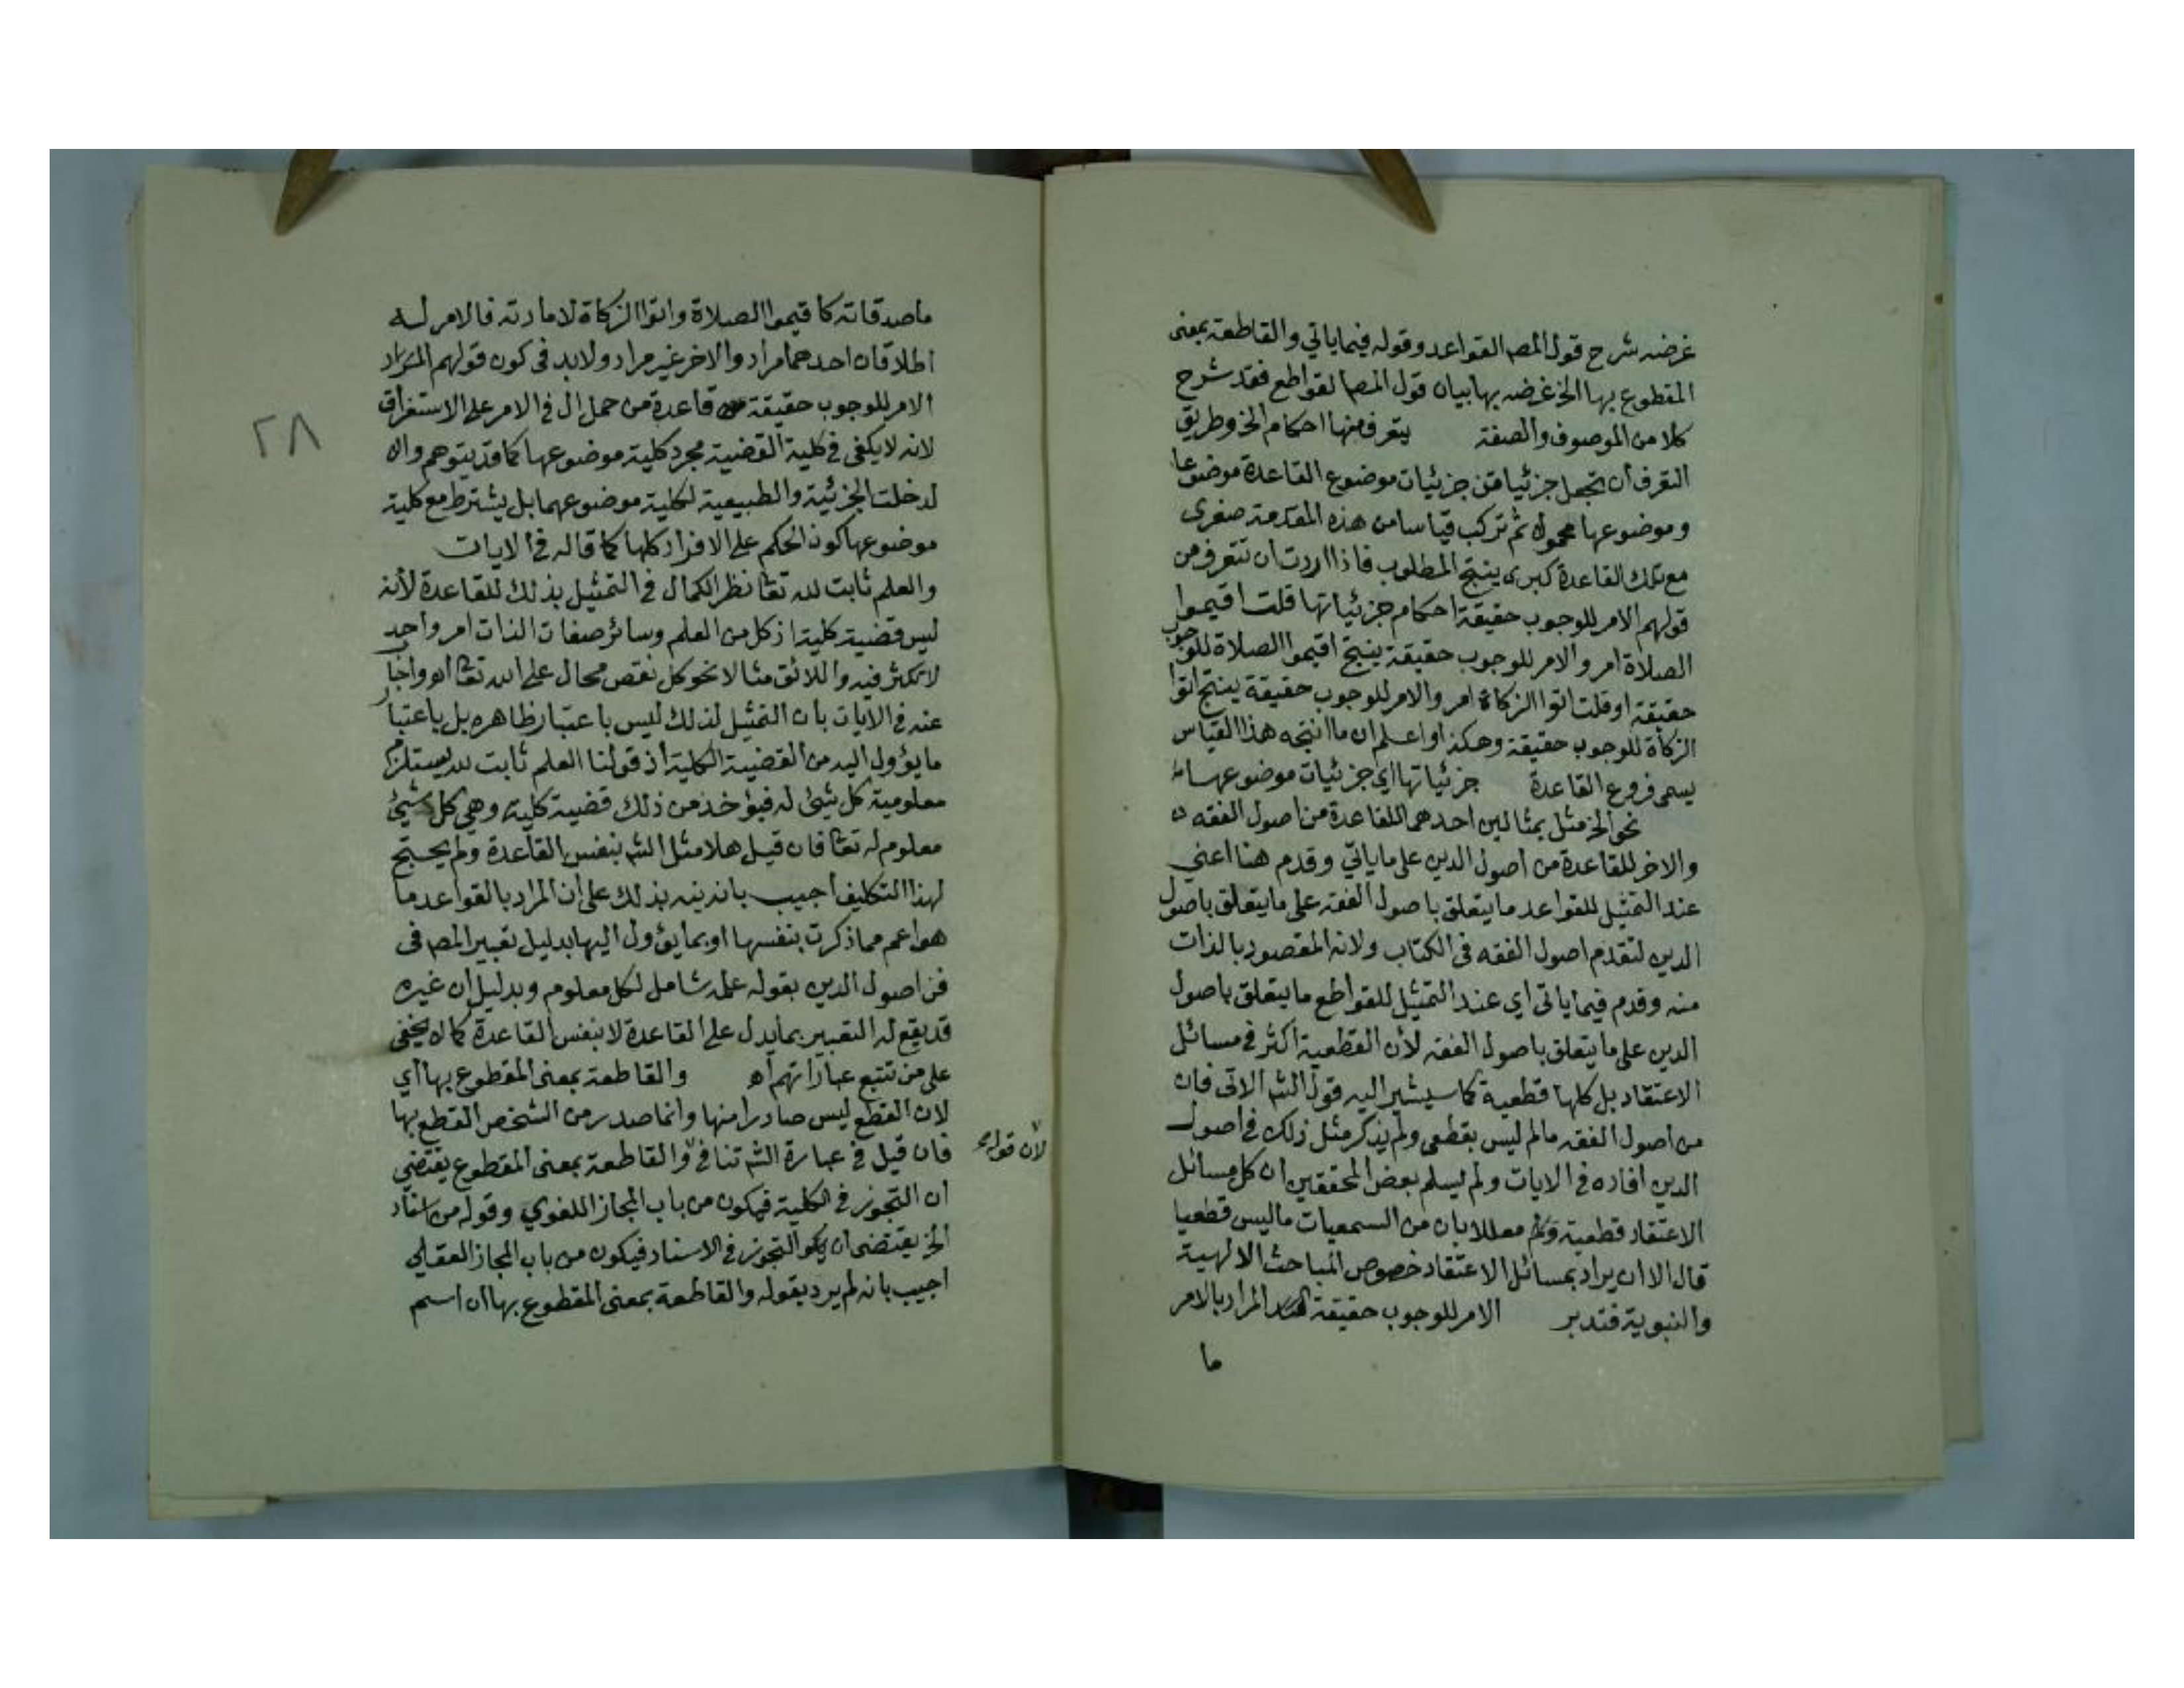 غرضه شرح قول المصه القواعد وقوله فيما ياتي والقاطعة بمعنى
المقطوع بها الخ غرضه بها بيان قول المصه القواطع فقد شرح
كلا من الموصوف والصفة يتعرف منها احكام الخ وطريق
التعرف أن تجعل جزئيا من جزئيات موضوع القاعدة موضوعا
وموضوعها محمولا ثم تركب قياسا من هذه المقدمة صغرى
مع تلك القاعدة كبرى ينتج المطلوب فاذا اردت أن تتعرف من
قولهم الامر للوجوب حقيقة احكام جزئياتها قلت اقيموا
الصلاة امر والامر للوجوب حقيقة ينتج اقيموا الصلاة للوجوب
حقيقة او قلت اتوا الزكاة امر والامر للوجوب حقيقة ينتج اتوا
الزكاة للوجوب حقيقة وهكذا واعلم ان ما انتجه هذا القياس
يسمى فروع القاعدة جزئياتها اي جزئيات موضوعها
نحو الخ مثل بمثالين احدهما للقاعدة من اصول الفقه
والاخر للقاعدة من اصول الدين على ما ياتي وقدم هنا اعني
عند التمثيل للقواعد ما يتعلق باصول الفقه على ما يتعلق باصول
الدين لتقدم اصول الفقه فى الكتاب ولانه المقصود بالذات
منه وقدم فيما ياتى اي عند التمثيل للقواطع ما يتعلق باصول
الدين على ما يتعلق باصول الفقه لأن القطعية اكثر في مسائل
الاعتقاد بل كلها قطعية كما سيشير اليه قول الشه الاتى فان
من اصول الفقه ما ليس بقطعى ولم يذكر مثل ذلك في اصول
الدين افاده في الايات ولم يسلم بعض المحققين ان كل مسائل
الاعتقاد قطعية معللا بان من السمعيات ما ليس قطعيا
قال الا ان يراد بمسائل الاعتقاد خصوص المباحث الالهية
والنبوية فتدبر الامر للوجوب حقيقة المراد بالامر
ما
ماصدقاته كاقيموا الصلاة واتوا الزكاة لا مادته فالامر له
اطلاقان احدهما مراد والاخر غير مراد ولابد فى كون قولهم المراد
الامر للوجوب حقيقة قاعدة من حمل ال في الامر على الاستغراق
لانه لا يكفى في كلية القضية مجرد كلية موضوعها كما قد يتوهم والا
لدخلت الجزئية والطبيعية لكلية موضوعهما بل يشترط مع كلية
موضوعها كون الحكم على الافراد كلها كما قاله في الايات
والعلم ثابت لله تعا نظر الكمال في التمثيل بذلك للقاعدة لأنه
ليس قضية كلية اذ كل من العلم وسائر صفات الذات امر واحد
لا تكثر فيه واللائق مثالا نحو كل نقص محال على الله تعا اهـ واجاب
عنه في الآيات بان التمثيل لذلك ليس باعتبار ظاهره بل باعتبار
ما يؤول اليه من القضية الكلية اذ قولنا العلم ثابت لله يستلزم
معلومية كل شئ له فيؤخذ من ذلك قضية كلية وهي كل شئ
معلوم له تعا فان قيل هلا مثل الشه بنفس القاعدة ولم يحتج
لهذا التكليف اجيب بانه نبه بذلك على ان المراد بالقواعد ما
هو اعم مما ذكرت بنفسها او بما يؤول اليها بدليل تعبير المصه فى
فن اصول الدين بقوله علمه شامل لكل معلوم وبدليل ان غيره
قد يقع له التعبير بما يدل على القاعدة لا بنفس القاعدة كما لا يخفى
على من تتبع عباراتهم اهـ والقاطعة بمعنى المقطوع بها أي
لان القطع ليس صادرا منها وانما صدر من الشخص القطع بها
فان قيل في عبارة الشه تنافي والقاطعة بمعنى المقطوع يقتضي
لأن قوله
ان التجوز في الكلية فيكون من باب المجاز اللغوي وقوله من اسناد
الخ يقتضى ان يكو التجوز في الاسناد فيكون من باب المجاز العقلي
اجيب بانه لم يرد بقوله والقاطعة بمعنى المقطوع بها ان اسم
٢٨